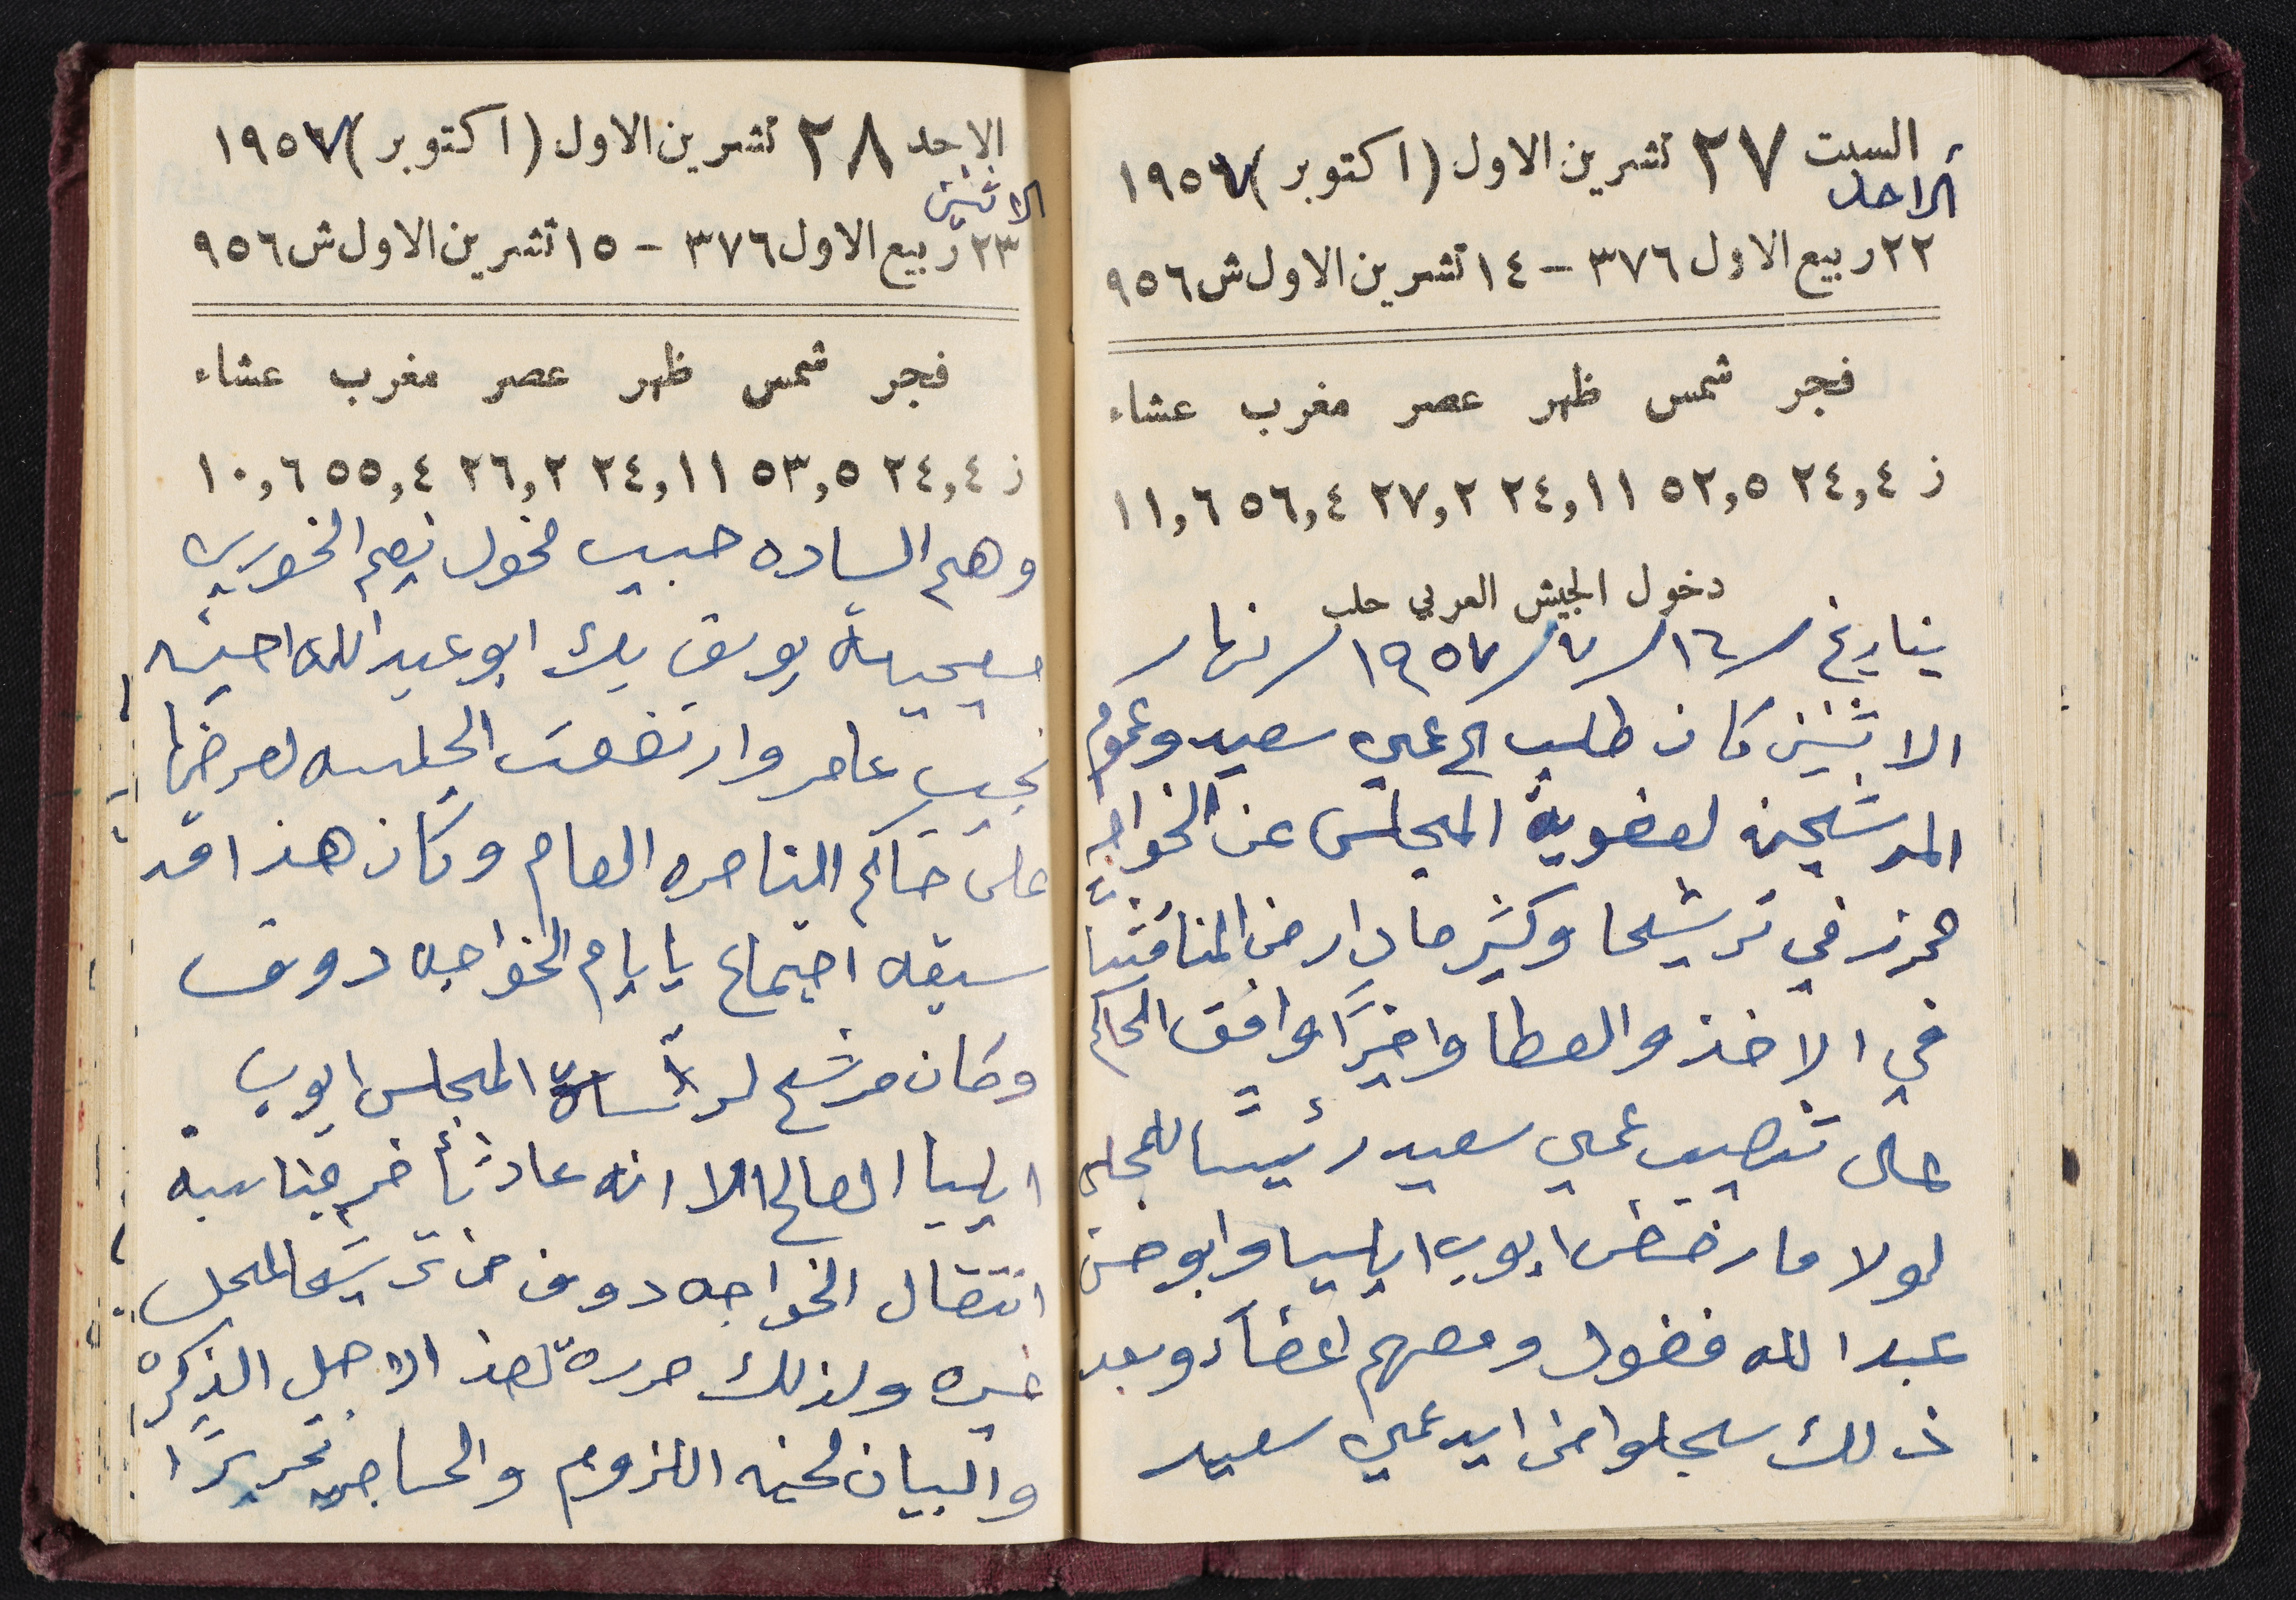 السبت ٢٧ تشرين الاول (اكتوبر) ١٩٥٧
الاحد
٢٢ ربيع الاول ٣٧٦ – ١٤ تشرين الاول ش ٩٥٦
فجر شمس ظهر عصر مغرب عشاء
ز ٢٤,٤ ٥٢,٥ ٢٤,١١ ٢٧,٢ ٥٦,٤ ١١,٦
دخول الجيش العربي حلب
بتاريخ ١٩٥٧ نهار
الاثنين كان طلب الى عمي سعيد وعموم
المرشحين لعضوية المجلس عن الخواجه
في ترشيحا وكثير ما دار من المناقشات
في الاخذ والعطا واخيرًا وافق الحاكم
على تنصيب عمي سعيد رئيسًا للمجلس
لولا ما رفض ايوب ايليا وابو حسن
عبد الله فضول ومعهم اعضاء وبعد
ذلك سجلوا من ايد عمي سعيد
الاحد ٢٨ تشرين الاول (اكتوبر) ١٩٥٧
الاثنين
٢٣ ربيع الاول ٣٧٦ – ١٥ تشرين الاول ش ٩٥٦
فجر شمس ظهر عصر مغرب عشاء
ز ٢٤,٤ ٥٣,٥ ٢٤,١١ ٢٦,٢ ٥٥,٤ ١٠,٦
وهم الساده حبيب مخول نعيم الخوري
بك ابو عبد الله
نجيب عامر وارتفعت الجلسه لعرضها
على حاكم الناصره العام وكان هذا قد
سبقه اجتماع بايام الخواجه دوف
وكان مرشح لرئاسة المجلس ايوب
ايليا الصالح الا انه عاد تأخر مناسبة
انتقال الخواجه دوف من ترشيحا لمحل
غيره ولذلك حررة لهذ الاجل الذكرة
والبيان لحينه اللزوم والحاجه تحريرًا